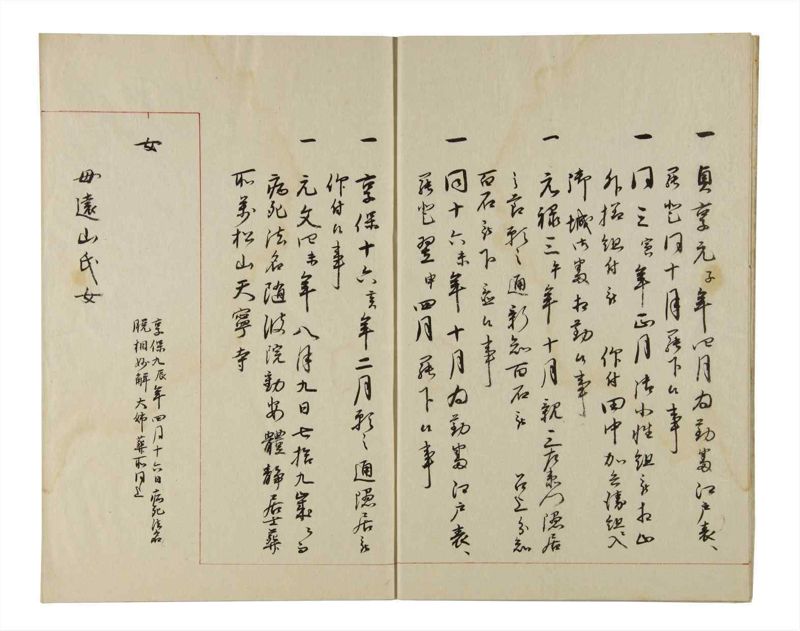 一 貞享元子年四月為勤番江戸表、
罷登同十月罷下候事
一 同三寅年正月御小姓組被相止
外様組付被 仰付田中加兵衛組へ入
御城御番相勤候事
一 元禄三午年十月親三左衛門隠居
之節願之通新知百石被 召上分知
百石被下置候事
一 同十六未年十月為勤番江戸表、
罷登翌申四月罷下候事
一 享保十六亥年二月願之通隠居被
仰付候事
一 元文四未年八月九日七拾九歳ニ而
病死法名随波院勤安體静居士葬
所萬松山天寧寺
女
享保九辰年四月十六日病死法名
脱相妙解大姉葬所同上
母遠山氏女